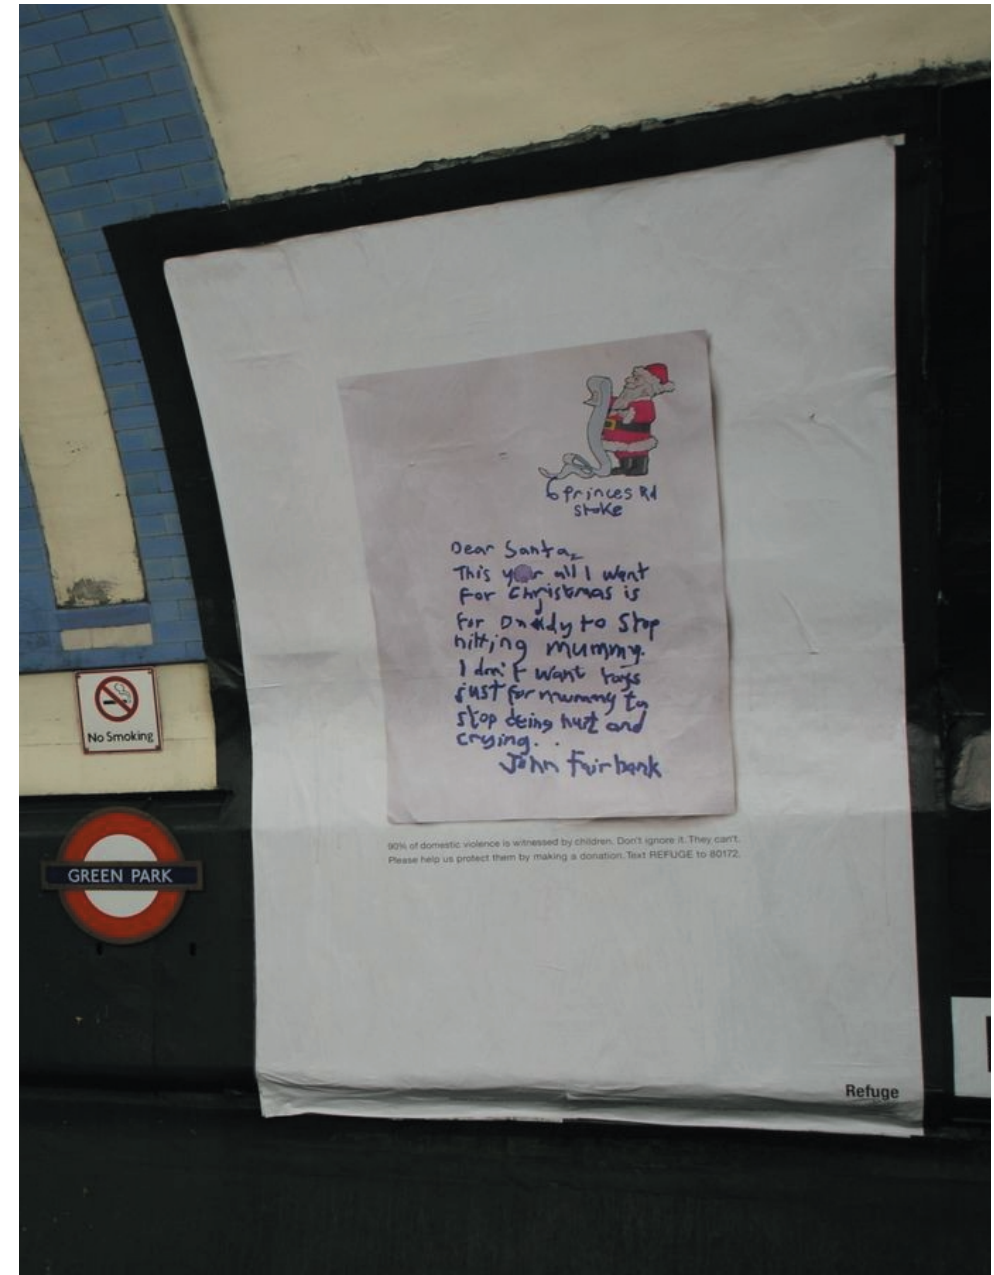 6 Princes Rd
Stoke
Dear Santa,
This year all I want
for Christmas is
for Daddy to stop
hitting mummy.
I don't want toys
just for mummy to
stop being hurt and
crying. . .
John Fairbank
90% of domestic violence is witnessed by children. Don't ignore it. They can't.
Please help us protect them by making a donation. Text REFUGE to 80172.
Refuge
No Smoking
GREEN PARK